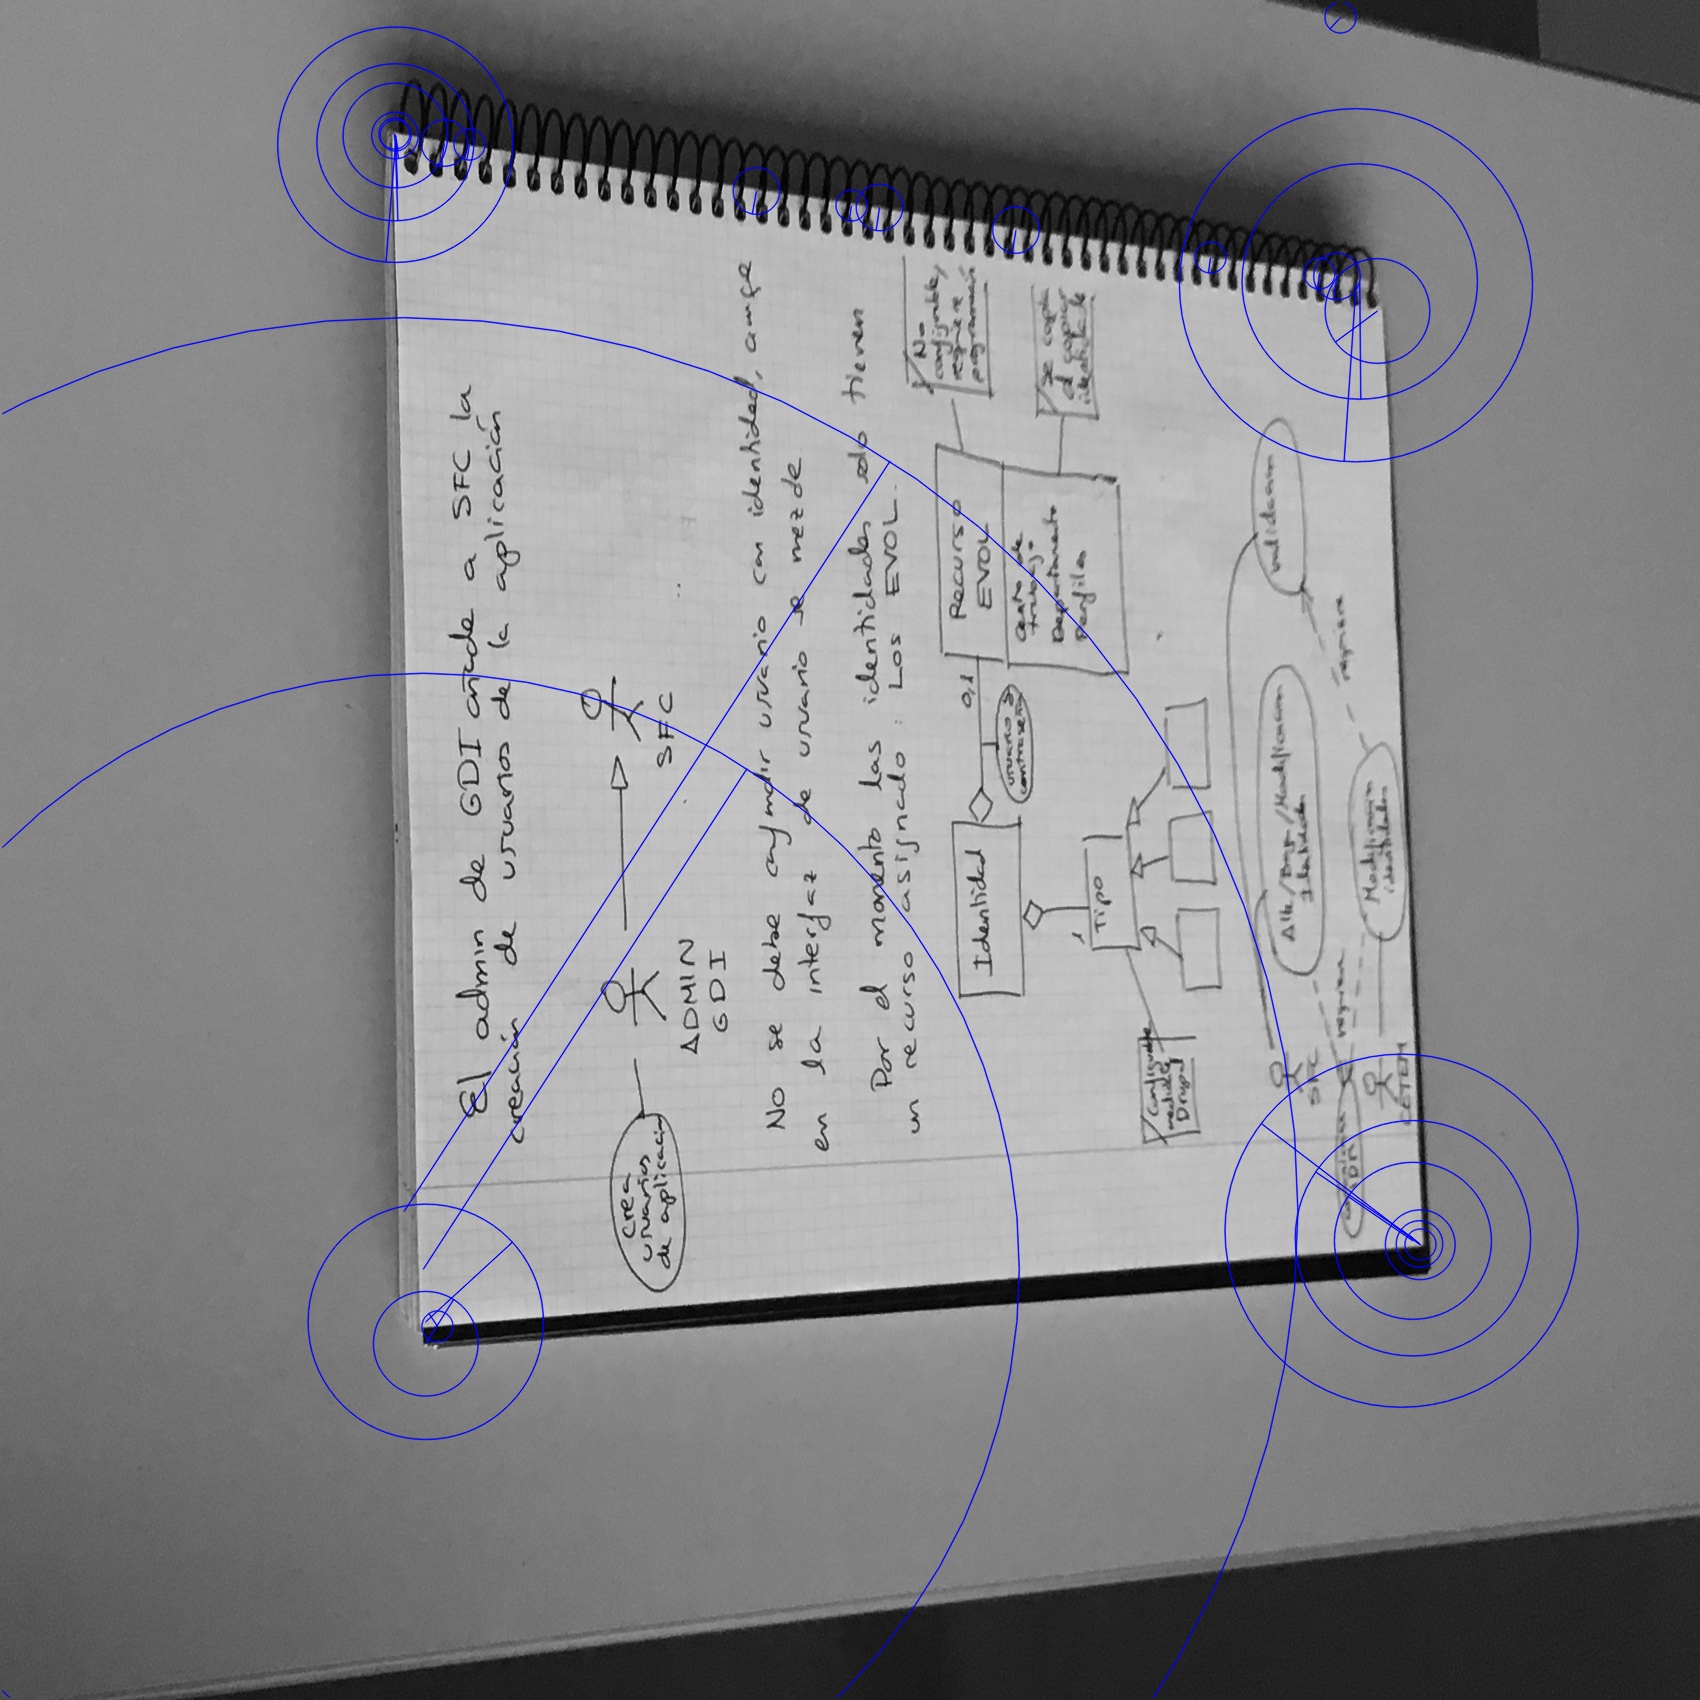 El admin de GDI añade a SFC la
creación de usuarios de la aplicación
Crea
usuarios
de aplicación
ADMIN
GDI
SFC
No se debe confundir usuario con identidad, aunque
en la interfaz de usuario se mezcle
Por el momento las identidades solo tienen
un recurso asignado: Los EVOL.
Identidad
0,1
usuario y
contraseña
Recurso
EVOL
Centro de
trabajo
Departamento
Perfiles
No
configurable,
requiere
programación
Se copia
al copiar
identidade
1
Tipo
Configurable
mediante
Drupal
SFC
Alta/Baja/Modificación
Identidades
validación
requiere
requiere
Modificación
identidades
GDI